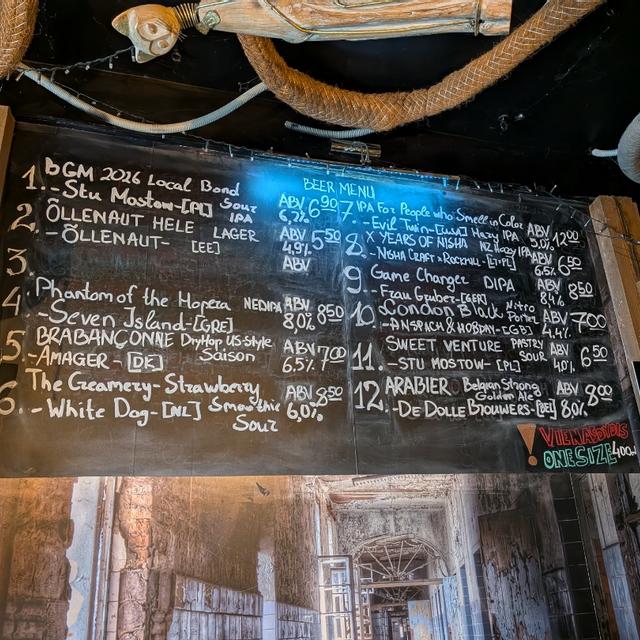 BEER MENU
1. BGM 2026 Local Bond
- Stu Mostow - [PL] Sour IPA ABV 6,7% 6 90
2. ÕLLENAUT HELE LAGER
- ÕLLENAUT - [EE] ABV 4,9% 5 50
3. ABV
4 Phantom of the Hopera NEDIPA
- Seven Island - [GRE] ABV 8,0% 8 50
5 BRABANÇONNE DryHop US-style
- AMAGER - [DK] Saison ABV 6,5% 7 00
6. The Creamery - Strawberry
- White Dog - [NL] Smoothie Sour ABV 6,0% 8 50
7 IPA For People who Smell in Color
- Evil Twin - Hazy IPA ABV 5,0% 12 00
8. X YEARS OF NISHA NZ Hazy IPA
NISHA CRAFT + ROCKMILL - ABV 6,5% 6 50
9 Game Changer DIPA
- Frau Gruber - [GER] ABV 8,4% 8 50
10 London Black Nitro Porter
- ANSPACH & HOBDAY - [GB] ABV 4,4% 7 00
11. SWEET VENTURE PASTRY SOUR
- STU MOSTOW - [PL] ABV 4,0% 6 50
12. ARABIER Belgian Strong Golden Ale
- DE DOLLE BROUWERS - [BE] ABV 8,0% 8 00
! VIENAS DYDIS
ONE SIZE 400ml